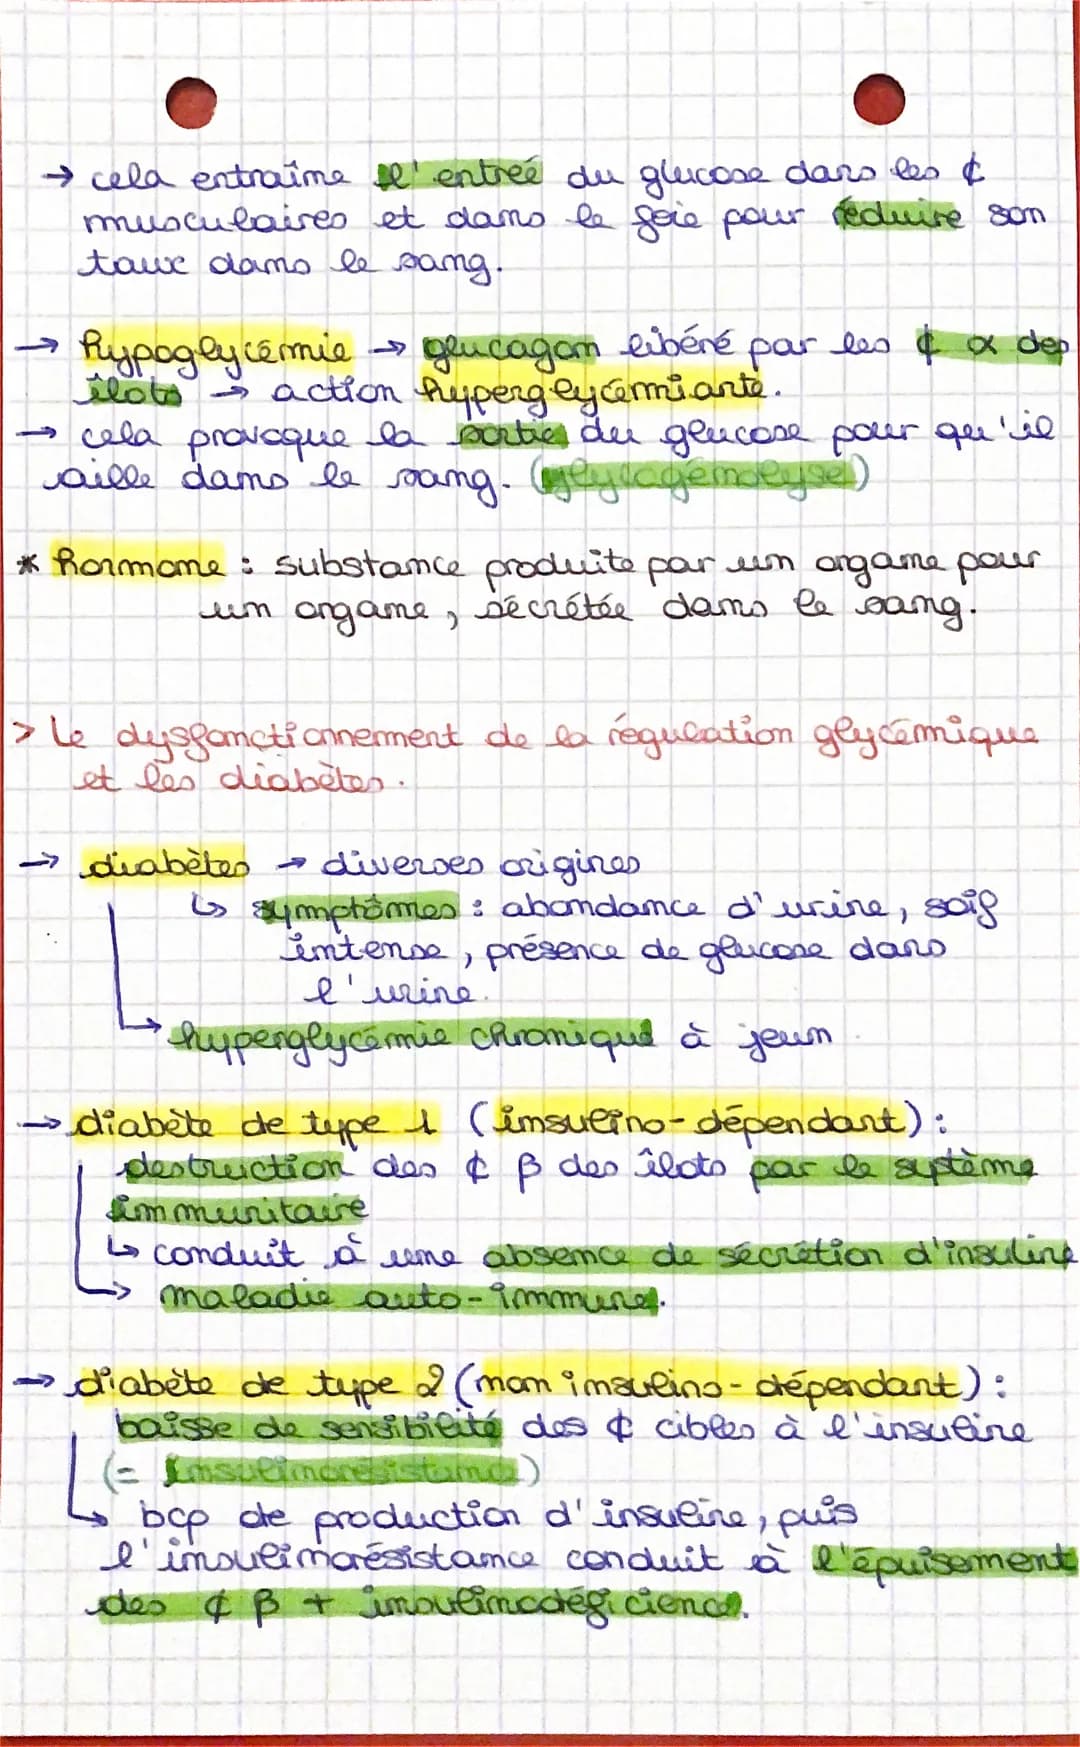 → cela entraîne l'entreé du glucose dans les ¢
musculaires et dans le foie pour réduire son
taux dans le sang.
→ hypoglycémie → glucagon libéré par les ¢ α des
îlots → action hyperglycémiante.
→ cela provoque la sortie du glucose pour qu'il
aille dans le sang. (glycogénolyse)
* hormone : substance produite par un organe pour
un organe, sécrétée dans le sang.
> Le dysfonctionnement de la régulation glycémique
et les diabètes.
→ diabètes → diverses origines
↳ symptômes : abondance d'urine, soif
intense, présence de glucose dans
l'urine.
↳ hyperglycémie chronique à jeun
→ diabète de type 1 (insulino-dépendant) :
destruction des ¢ β des îlots par le système
immunitaire
↳ conduit à une absence de sécrétion d'insuline
↳ maladie auto-immune.
→ diabète de type 2 (non insulino-dépendant) :
baisse de sensibilité des ¢ cibles à l'insuline
(= insulinorésistance)
↳ bcp de production d'insuline, puis
l'insulinorésistance conduit à l'épuisement
des ¢ β + insulinodéficience.